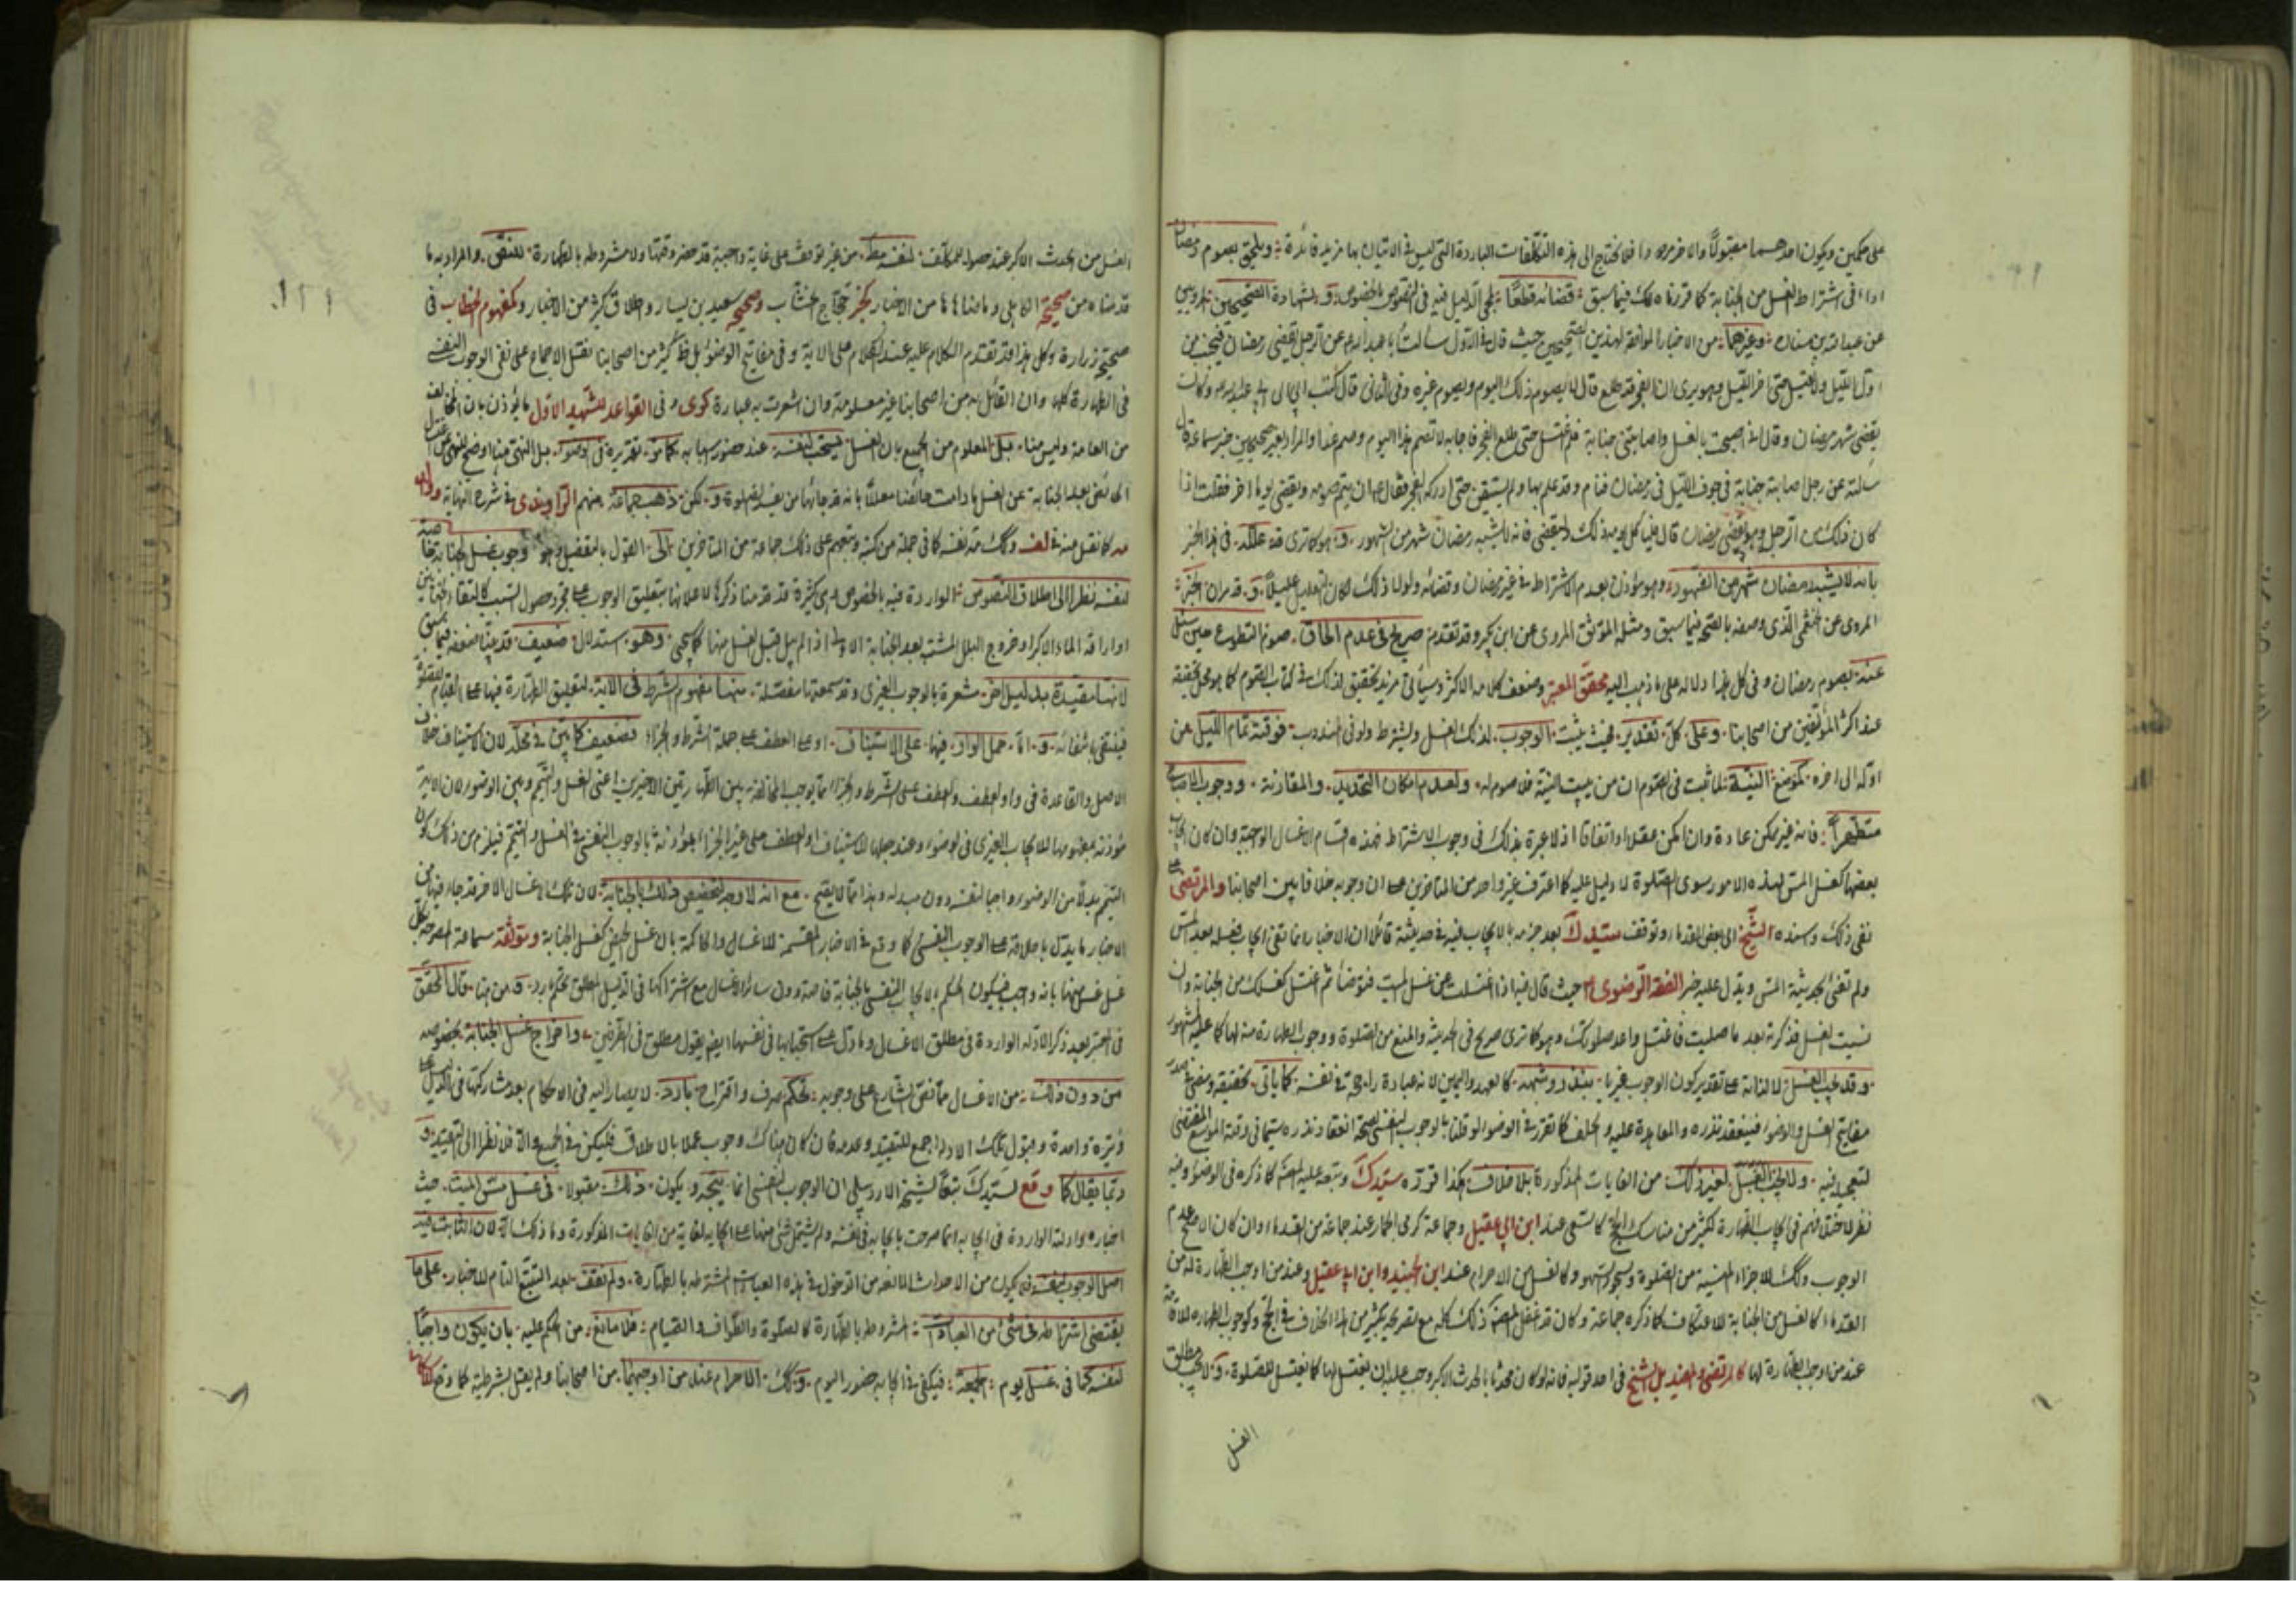 على حكمين ويكون احدهما مقبولا والاخر مردودا فلا يحتاج الى هذه التكلفات الباردة التي ليس في الاتيان بها مزيد فائدة ويلحق بصوم رمضان
اداء في اشتراط الغسل من الجنابة كما قررناه لك فيما سبق قضائه قطعا لمجئ الدليل فيه في النصوص بالخصوص ولشهادة الصحيحين المرويين
عن عبد الله بن سنان وغيرهما من الاخبار الموافقة لهذين الصحيحين حيث قال في الاول سالت ابا عبد الله ع عن الرجل يقضي رمضان فيجنب من
اول الليل ولا يغتسل حتى اخر الليل وهو يرى ان الفجر قد طلع قال لا يصوم ذلك اليوم ويصوم غيره وفي الثاني قال كتب ابي الى ابي عبد الله ع وكان
يقضي شهر رمضان وقال اني اصبحت بالغسل واصابتني جنابة فلم اغتسل حتى طلع الفجر فاجابه لا تصم هذا اليوم وصم غدا والمراد بغير الصحيحين خبر سماعة قال
سالته عن رجل اصابته جنابة في جوف الليل في رمضان فنام وقد علم بها ولم يستيقظ حتى ادركه الفجر فقال عليه ان يتم صومه ويقضي يوما اخر فقلت اذا
كان ذلك من الرجل وهو يقضي رمضان قال فلياكل يومه ذلك وليقضى فانه لا يشبه رمضان شهر من الشهور وهو كما ترى قد علله في هذا الخبر
بانه لا يشبه رمضان شهر من الشهور وهو مؤذن بعدم الاشتراط في غير رمضان وقضائه ولولا ذلك لكان التعليل عليلا وقد مر ان الخبر
المروي عن الخثعمي الذي وصفه بالصحة فيما سبق ومثله الموثق المروي عن ابن بكير وقد تقدم صريح في عدم الحاق صوم التطوع حين سئل
عنه بصوم رمضان وفي كل هذا دلالة على ما ذهب اليه محقق المعتبر وضعف كلام الاكثر وسيأتي مزيد تحقيق لذلك في كتاب الصوم كما هو محل تحقيقه
عند اكثر المؤلفين من اصحابنا وعلى كل تقدير فحيث يثبت الوجوب لذلك الغسل ويشترط ولو في المندوب فوقته تمام الليل من
اوله الى اخره كموضع النية لما ثبت في الصوم ان من لم يبيت النية فلا صوم له ولعدم امكان التحديد والمقارنة ووجوب الاصباح
متطهرا فانه غير ممكن عادة وان امكن عقلا واتفاقا اذ لا عبرة بذلك في وجوب الاشتراط فهذه اقسام الاغسال الواجبة وان كان ايجاب
بعضها كغسل المس لهذه الامور سوى الصلوة لا دليل عليه كما اعترف غير واحد من المتاخرين على ان وجوبه خلافا بين اصحابنا والمرتضى على
نفي ذلك واسنده الشيخ الى بعض القدماء وتوقف سيد ك بعد جزمه بالايجاب فيه في حديثه قائلا ان الاخبار انما تقتضي ايجاب فعله بعد المس
ولم تقض بحدثية المس ويدل عليه خبر الفقه الرضوي حيث قال فيه اذا اغتسلت من غسل الميت فتوضأ ثم اغتسل كغسلك من الجنابة وان
نسيت الغسل فذكرته بعد ما صليت فاغتسل واعد صلوتك وهو كما ترى صريح في الحدثية والمنع من الصلوة ووجوب الطهارة منه لها كما عليه المشهور
وقد يجب الغسل لا لذاته على تقدير كون الوجوب غيريا بنذر وشبهه كالعهد واليمين لانه عبادة راجحة في نفسه كما ياتي تحقيقه ومضى في صدر
مفاتيح الغسل والوضوء فينعقد نذره والمعاهدة عليه والحلف كما تقرر في الوضوء لو قلنا بالوجوب النفسي لصحة انعقاد نذره سيما في وقته الموسع المقتضي
لتعجيل فيه ولا يجب الغسل لغير ذلك من الغايات المذكورة بلا خلاف هكذا قرره سيد ك وتبعه عليه المصنف كما ذكره في الوضوء وفيه
نظر لاختلافهم في ايجاب الطهارة لكثير من مناسك الحج كالسعي عند ابن ابي عقيل وجماعة كرمي الجمار عند جماعة من القدماء وان كان الاصح عدم
الوجوب وكذلك للاجزاء المنسية من الصلوة وسجود السهو وكالغسل من الاحرام عند ابن الجنيد وابن ابي عقيل وعند من اوجب الطهارة له من
القدماء كالغسل من الجنابة للاعتكاف كما ذكره جماعة وكان قد غفل المصنف ذلك كله مع تصريحه بكثير من هذا الخلاف في الحج وكوجوب الطهارة للاقامة
عند من اوجب الطهارة لها كالمرتضى والمفيد بل الشيخ في احد قوليه فانه لو كان محدثا بالحدث الاكبر وجب عليه ان يغتسل لها كما يغتسل للصلوة ولا يجب مطلق
الغسل
الغسل من الحدث الاكبر عند حصوله للمكلف لنفسه مط من غير توقف على غاية واجبة قد حضر وقتها ولا مشروطه بالطهارة للنص والمراد به ما
قدمناه من صحيحة الكاهلي وما ضاهاها من الاخبار كخبر حجاج الخشاب وصحيح سعيد بن يسار واطلاق كثير من الاخبار وكمفهوم الخطاب في
صحيح زرارة وكل هذا قد تقدم الكلام عليه عند الكلام على الاية وفي مفاتيح الوضوء بل ظ كثير من اصحابنا نقل الاجماع على نفي الوجوب النفسي
في الطهارة كلها وان القائل به من اصحابنا غير معلومة وان اشعرت به عبارة كرى وفي القواعد للشهيد الاول ما يؤذن بان المخالف
من العامة وليس منا بل المعلوم من الجميع بان الغسل يستحب لنفسه عند حضور اسبابه كما مر تقريره في الوضوء بل النهي هنا اوضح للنهي عن غسل
الحائض بعد الجنابة عن الغسل ما دامت حائضا معللا بانه قد جائها من يفسد الصلوة ولكن ذهب جماعة منهم الراوندي في شرح النهاية والعلامة
مه كما نقل عنه في لف وكذلك مه نفسه كما في جملة من كتبه وتبعهم على ذلك جماعة من المتاخرين الى القول بالتفصيل وهو وجوب غسل الجنابة خاصة
لنفسه نظرا الى اطلاق النصوص الواردة فيه بالخصوص وهي كثيرة قد قدمنا ذكرها لاعلانها بتعليق الوجوب على مجرد حصول السبب كالتقاء الختانين
او اراقة الماء الاكبر او خروج البلل المشتبه بعد الجنابة الاولى اذا لم يبل قبل الغسل منها كما سيجئ وهو استدلال ضعيف قد بينا ضعفه فيما سبق
لانها مقيدة بدليل اخر مشعرة بالوجوب الغيري وقد سمعتها مفصلة منها مفهوم الشرط في الاية لتعليق الطهارة فيها على القيام للصلوة
فينتفي بانتفائه واما حمل الواو فيها على الاستيناف او على العطف على جملة الشرط والجزاء فضعيف كما بين في محله لان الاستيناف خلاف
الاصل والقاعدة في واو العطف والعطف على الشرط والجزاء مما يوجب المخالفة بين الطهارتين الاخيرين اعني الغسل والتيمم وبين الوضوء لان الاية
مؤذنة بمفهومها للايجاب الغيري في الوضوء وعند حملها للاستيناف او العطف على غير الجزاء مؤذنة بالوجوب النفسي في الغسل والتيمم فيلزم من ذلك كون
التيمم بدلا من الوضوء واجبا لنفسه دون مبدله وهذا مما لا يصح مع انه لا وجه لتخصيص ذلك بالجنابة لان تلك الاغسال الاخر قد جاء فيها من
الاخبار ما يدل باطلاقه على الوجوب النفسي كما وقع في الاخبار المقسمة للاغسال والحاكمة بان غسل الحيض كغسل الجنابة وموثقة سماعة المصرحة بكل
غسل غسل منها بانه واجب فيكون الحكم بالايجاب النفسي بالجنابة خاصة دون سائر الاغسال مع اشتراكها في الدليل المطلق تحكم بارد ومن هنا قال المحقق
في المعتبر بعد ذكر الادلة الواردة في مطلق الاغسال وما دل على استحبابها في نفسها ايضا بقول مطلق في الطرفين واخراج غسل الجنابة بخصوصه
من دون ذلك من الاغسال مما نص الشارع على وجوبه تحكم صرف واقتراح بارد لا يصار اليه في الاحكام بعد مشاركتها في الدليل على
وتيرة واحدة وقبول تلك الادلة اجمع للتقييد وعدمه فان كان هناك وجوب عملا بالاطلاق فليكن في الجميع والا فلا نظرا الى التقييد و
ربما يقال كما وقع لسيد ك تبعا للشيخ الاردبيلي ان الوجوب النفسي انما يتجه ويكون ذلك مقبولا في غسل مس الميت حيث
اخباره وادلته الواردة في ايجابه انما صرحت بايجابه في نفسه ولم يشتمل شئ منها على ايجابه لغاية من الغايات المذكورة وما ذلك الا لان الثابت فيه
اصل الوجوب لنفسه ولم يكون من الاحداث المانعة من الدخول في هذه العبادات المشترطه بالطهارة ولم نقف بعد التتبع التام للاخبار على ما
يقتضي اشتراطه في شئ من العبادات المشروطه بالطهارة كالصلوة والطواف والصيام فلا مانع من الحكم عليه بان يكون واجبا
لنفسه كما في غسل يوم الجمعة فيكفي في ايجابه حضور اليوم وكذلك الاحرام عند من اوجبهما من اصحابنا ولم يقل بشرطيته كما وقع للاسكافي